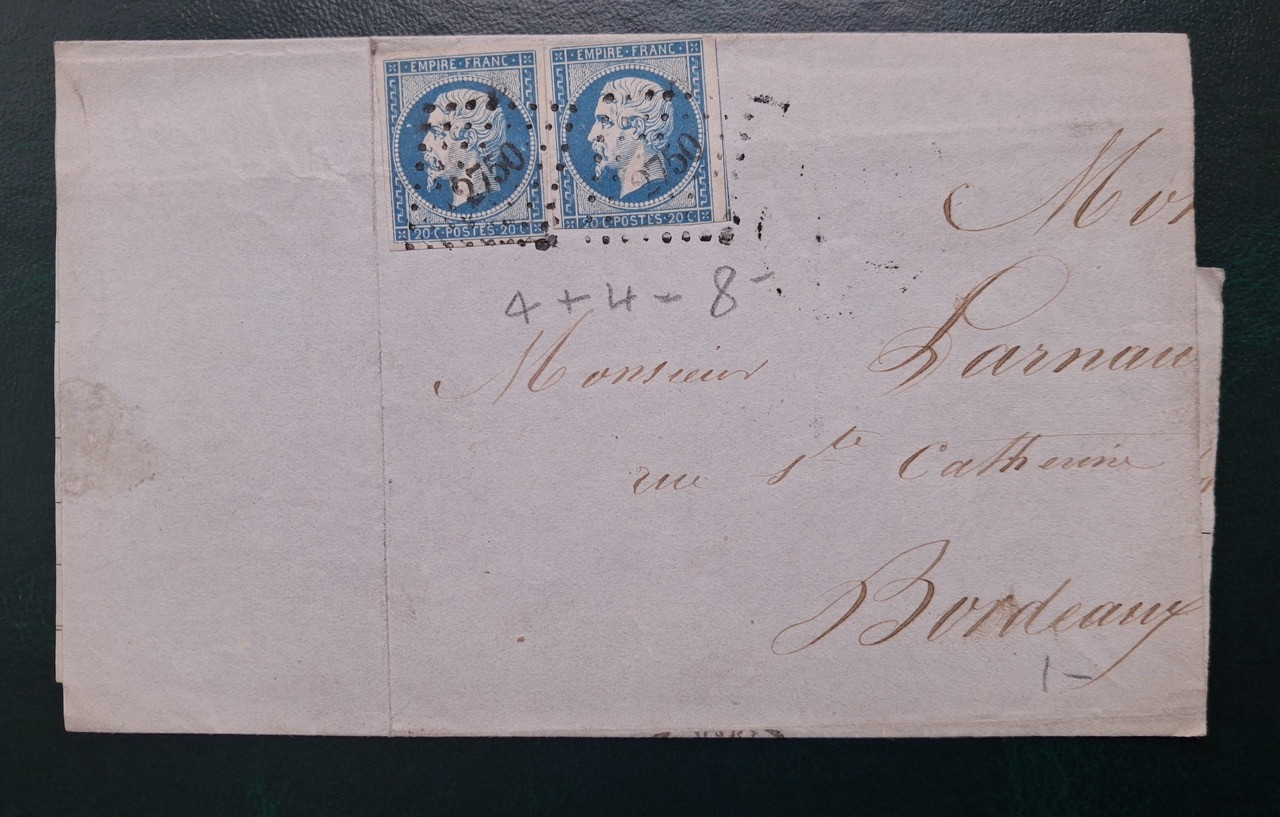 EMPIRE·FRANC· EMPIRE·FRANC·
2750 2750
20 C·POSTES·20 C 20 C·POSTES·20 C
Mon
4 + 4 - 8 -
Monsieur Larnau
rue Ste Catherine
Bordeaux
1 -